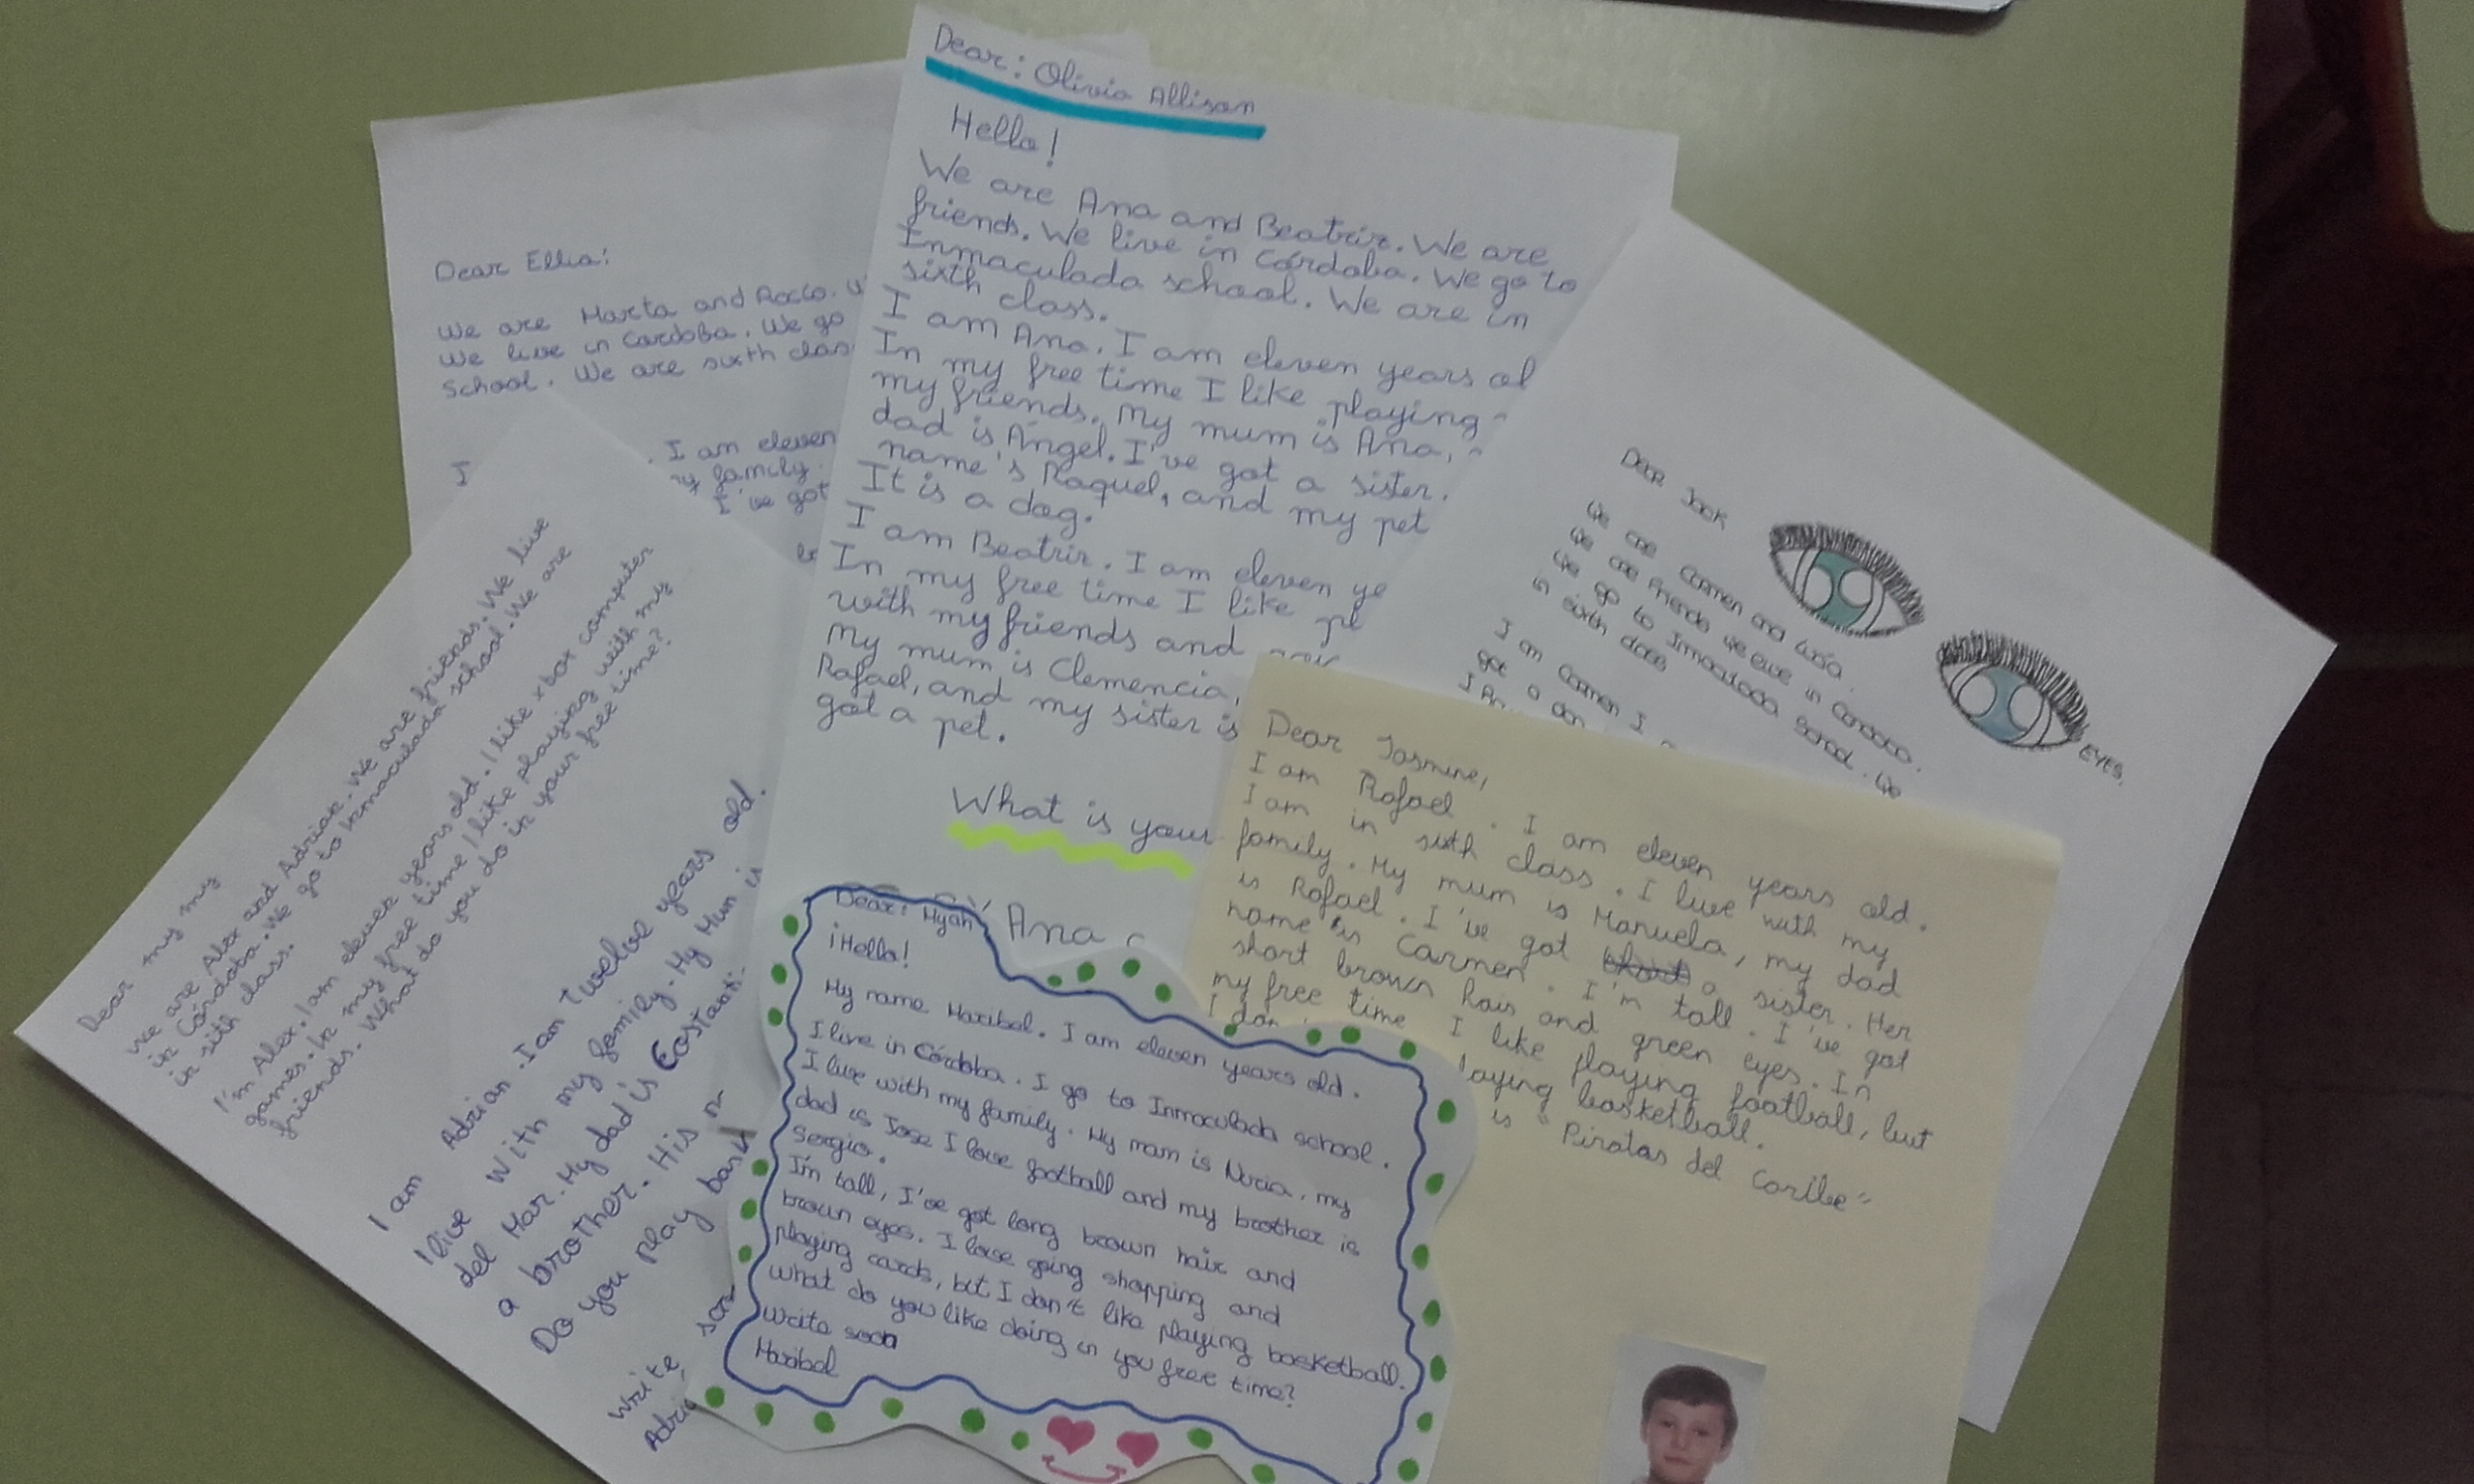 Dear Ellia:
We are Marta and Rocío.
We live in Cordoba. We go
School. We are sixth clas
I
. I am eleven
my family.
I've got
Dear: Olivia Allison
Hello!
We are Ana and Beatriz. We are
friends. We live in Córdoba. We go to
Inmaculada school. We are in
sixth class.
I am Ana. I am eleven years ol
In my free time I like playing
my friends. My mum is Ana,
dad is Ángel. I've got a sister.
name's Raquel, and my pet
It is a dog.
I am Beatriz. I am eleven ye
In my free time I like pl
with my friends and
My mum is Clemencia,
Rafael, and my sister is
got a pet.
What is your
Ana
Dear Jack
We are Carmen and Lucía.
We are friends we live in Cordoba.
We go to Inmaculada school. We
in sixth class
I am Carmen I
got a
EYES.
Dear my my
We are Alex and Adrian. We are friends. We live
in Córdoba. We go to Inmaculada school. We are
in sith class.
I'm Alex. I am eleven years old. I like xbox computer
games. In my free time I like playing with my
friends. What do you do in your free time?
I am Adrian. I am twelve years old.
I live with my family. My Mum is
del Mar. My dad is Costanti
a brother. His n
Do you play bask
Write, soo
Adria
Dear Jasmine,
I am Rafael. I am eleven years old.
I am in sixth class. I live with my
family. My mum is Manuela, my dad
is Rafael. I've got a sister. Her
name is Carmen. I'm tall. I've got
short brown hair and green eyes. In
my free time I like playing football, but
I don
laying basketball.
is "Piratas del Caribe"
Dear: Myah
¡Hello!
My name Maribel. I am eleven years old.
I live in Córdoba. I go to Inmaculada school.
I live with my family. My mam is Nuria, my
dad is Jose I love football and my brother is
Sergio.
I'm tall, I've got long brown hair and
brown eyes. I love going shopping and
playing cards, but I don't like playing basketball.
What do you like doing in you free time?
Write soon
Maribel